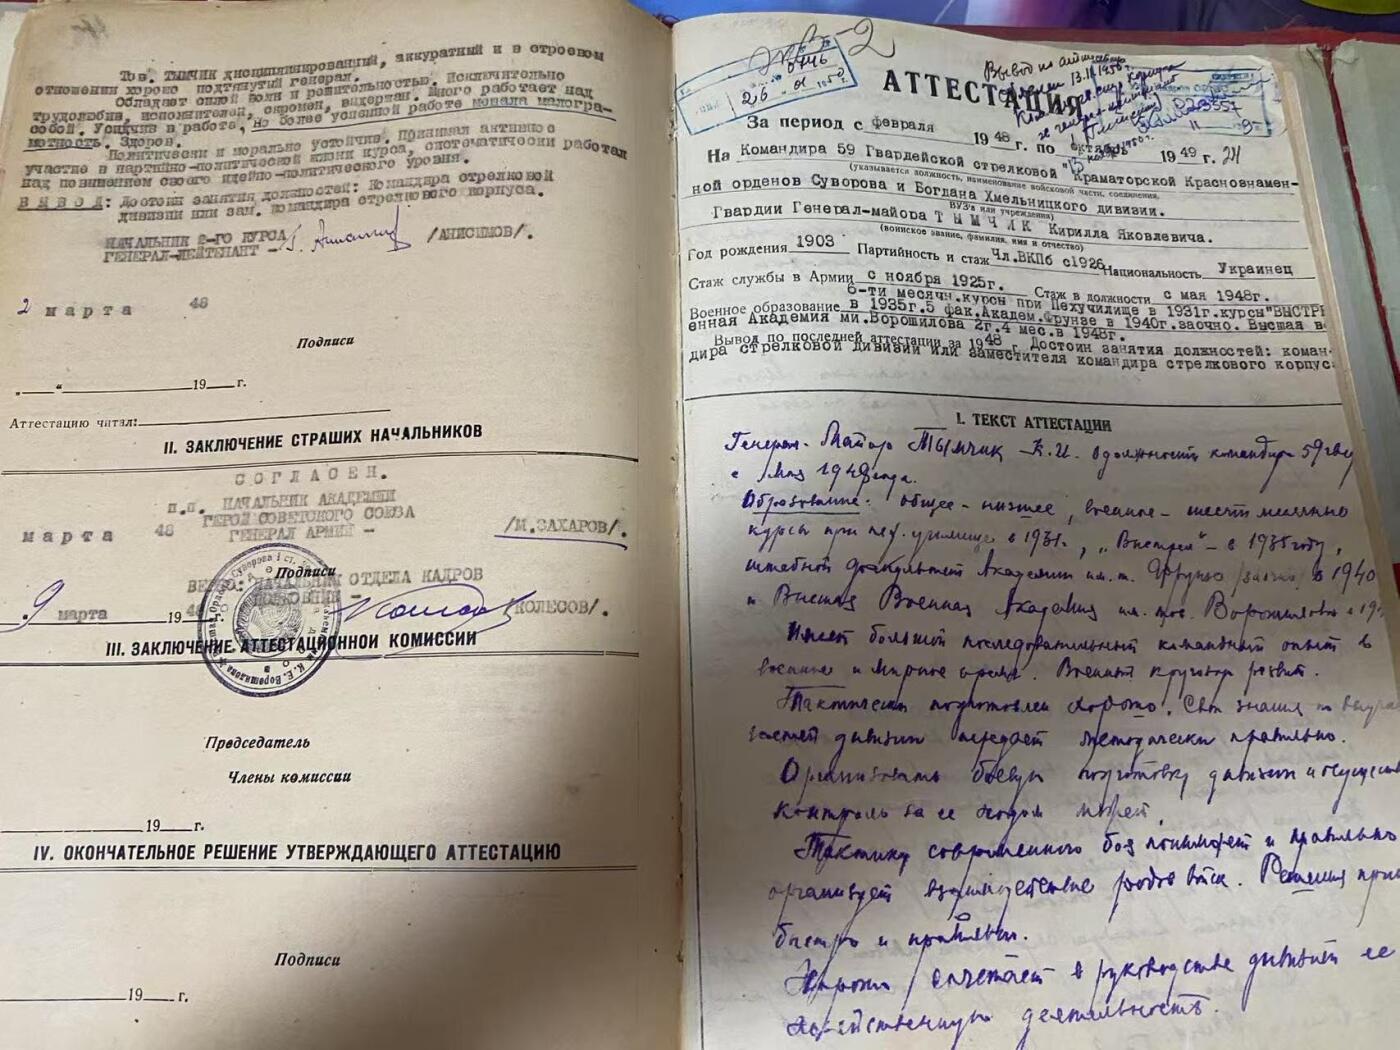 Тов. ТЫМЧИК дисциплинированный, аккуратный и в строевом
отношении хорошо подтянутый генерал.
Обладает силой воли и решительностью. Исключительно
трудолюбив, исполнителен, скромен, выдержан. Много работает над
собой. Усидчив в работе, но более успешной работе мешала малогра-
мотность. Здоров.
Политически и морально устойчив. Принимал активное
участие в партийно-политической жизни курса, систематически работал
над повышением своего идейно-политического уровня.
ВЫВОД: Достоин занятия должностей: Командира стрелковой
дивизии или зам. командира стрелкового корпуса.
НАЧАЛЬНИК 2-ГО КУРСА
ГЕНЕРАЛ-ЛЕЙТЕНАНТ - /АНИСИМОВ/.
2 марта 48
Подписи
„ “ 19 г.
Аттестацию читал:
II. ЗАКЛЮЧЕНИЕ СТРАШИХ НАЧАЛЬНИКОВ
СОГЛАСЕН.
п.п. НАЧАЛЬНИК АКАДЕМИИ
ГЕРОЙ СОВЕТСКОГО СОЮЗА
марта 48 ГЕНЕРАЛ АРМИИ - /М.ЗАХАРОВ/.
Подписи
ВЕРНО: НАЧАЛЬНИК ОТДЕЛА КАДРОВ
9 марта 19 48 г. ПОЛКОВНИК - /КОЛЕСОВ/.
III. ЗАКЛЮЧЕНИЕ АТТЕСТАЦИОННОЙ КОМИССИИ
Председатель
Члены комиссии
19 г.
IV. ОКОНЧАТЕЛЬНОЕ РЕШЕНИЕ УТВЕРЖДАЮЩЕГО АТТЕСТАЦИЮ
Подписи
19 г.
0446
26 01 1950
Вывод по аттестации
13.II.1950г.
АТТЕСТАЦИЯ
За период с февраля 1948 г. по октябрь 1949 г. 24
На Командира 59 Гвардейской стрелковой Краматорской Краснознамен-
(указывается должность, наименование войсковой части, соединения,
ной орденов Суворова и Богдана Хмельницкого дивизии.
ВУЗ'а или учреждения)
Гвардии Генерал-майора ТЫМЧИК Кирилла Яковлевича.
(воинское звание, фамилия, имя и отчество)
Год рождения 1903 Партийность и стаж Чл.ВКПб с1926 Национальность Украинец
Стаж службы в Армии с ноября 1925г. Стаж в должности с мая 1948г.
6-ти месячн.курсы при Пехучилище в 1931г.курсы"ВЫСТРЕ
Военное образование в 1935г.5 фак.Академ.Фрунзе в 1940г.заочно. Высшая в
енная Академия им.Ворошилова 2г.4 мес.в 1948г.
Вывод по последней аттестации за 1948 г. Достоин занятия должностей: коман-
дира стрелковой дивизии или заместителя командира стрелкового корпус
I. ТЕКСТ АТТЕСТАЦИИ
Генерал-Майор Тымчик К.И. в должности командира 59 гв
с мая 1948 года.
Образование: общее - низшее, военное - шести месячные
курсы при пех. училище в 1931г., „Выстрел" - в 1935 году,
штабной факультет Академии им. т. Фрунзе /заочно/ в 1940
и Высшая Военная Академия им. тов. Ворошилова в 19
Имеет большой последовательный командный опыт в
военное и мирное время. Военный кругозор развит.
Тактически подготовлен хорошо. Свои знания
частей дивизии передает методически правильно.
Организовать боевую подготовку дивизии и осуществ
контроль за ее ходом может.
Тактику современного боя понимает и правильно
организует взаимодействие родов войск. Решения прин
быстро и правильн.
Хорошо сочетает в руководстве дивизией ее
хозяйственную деятельность.